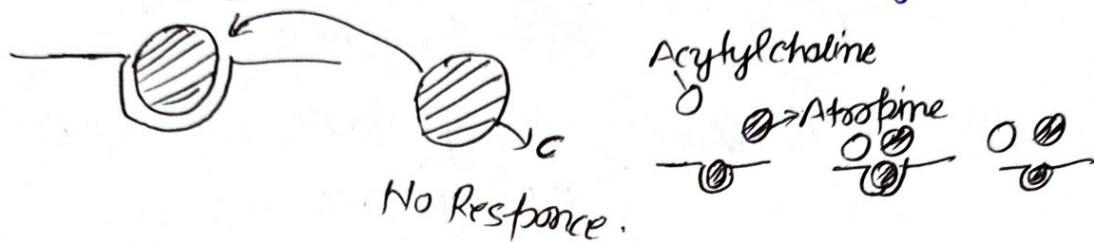 Acytylcholine
Atropine
C
No Responce.